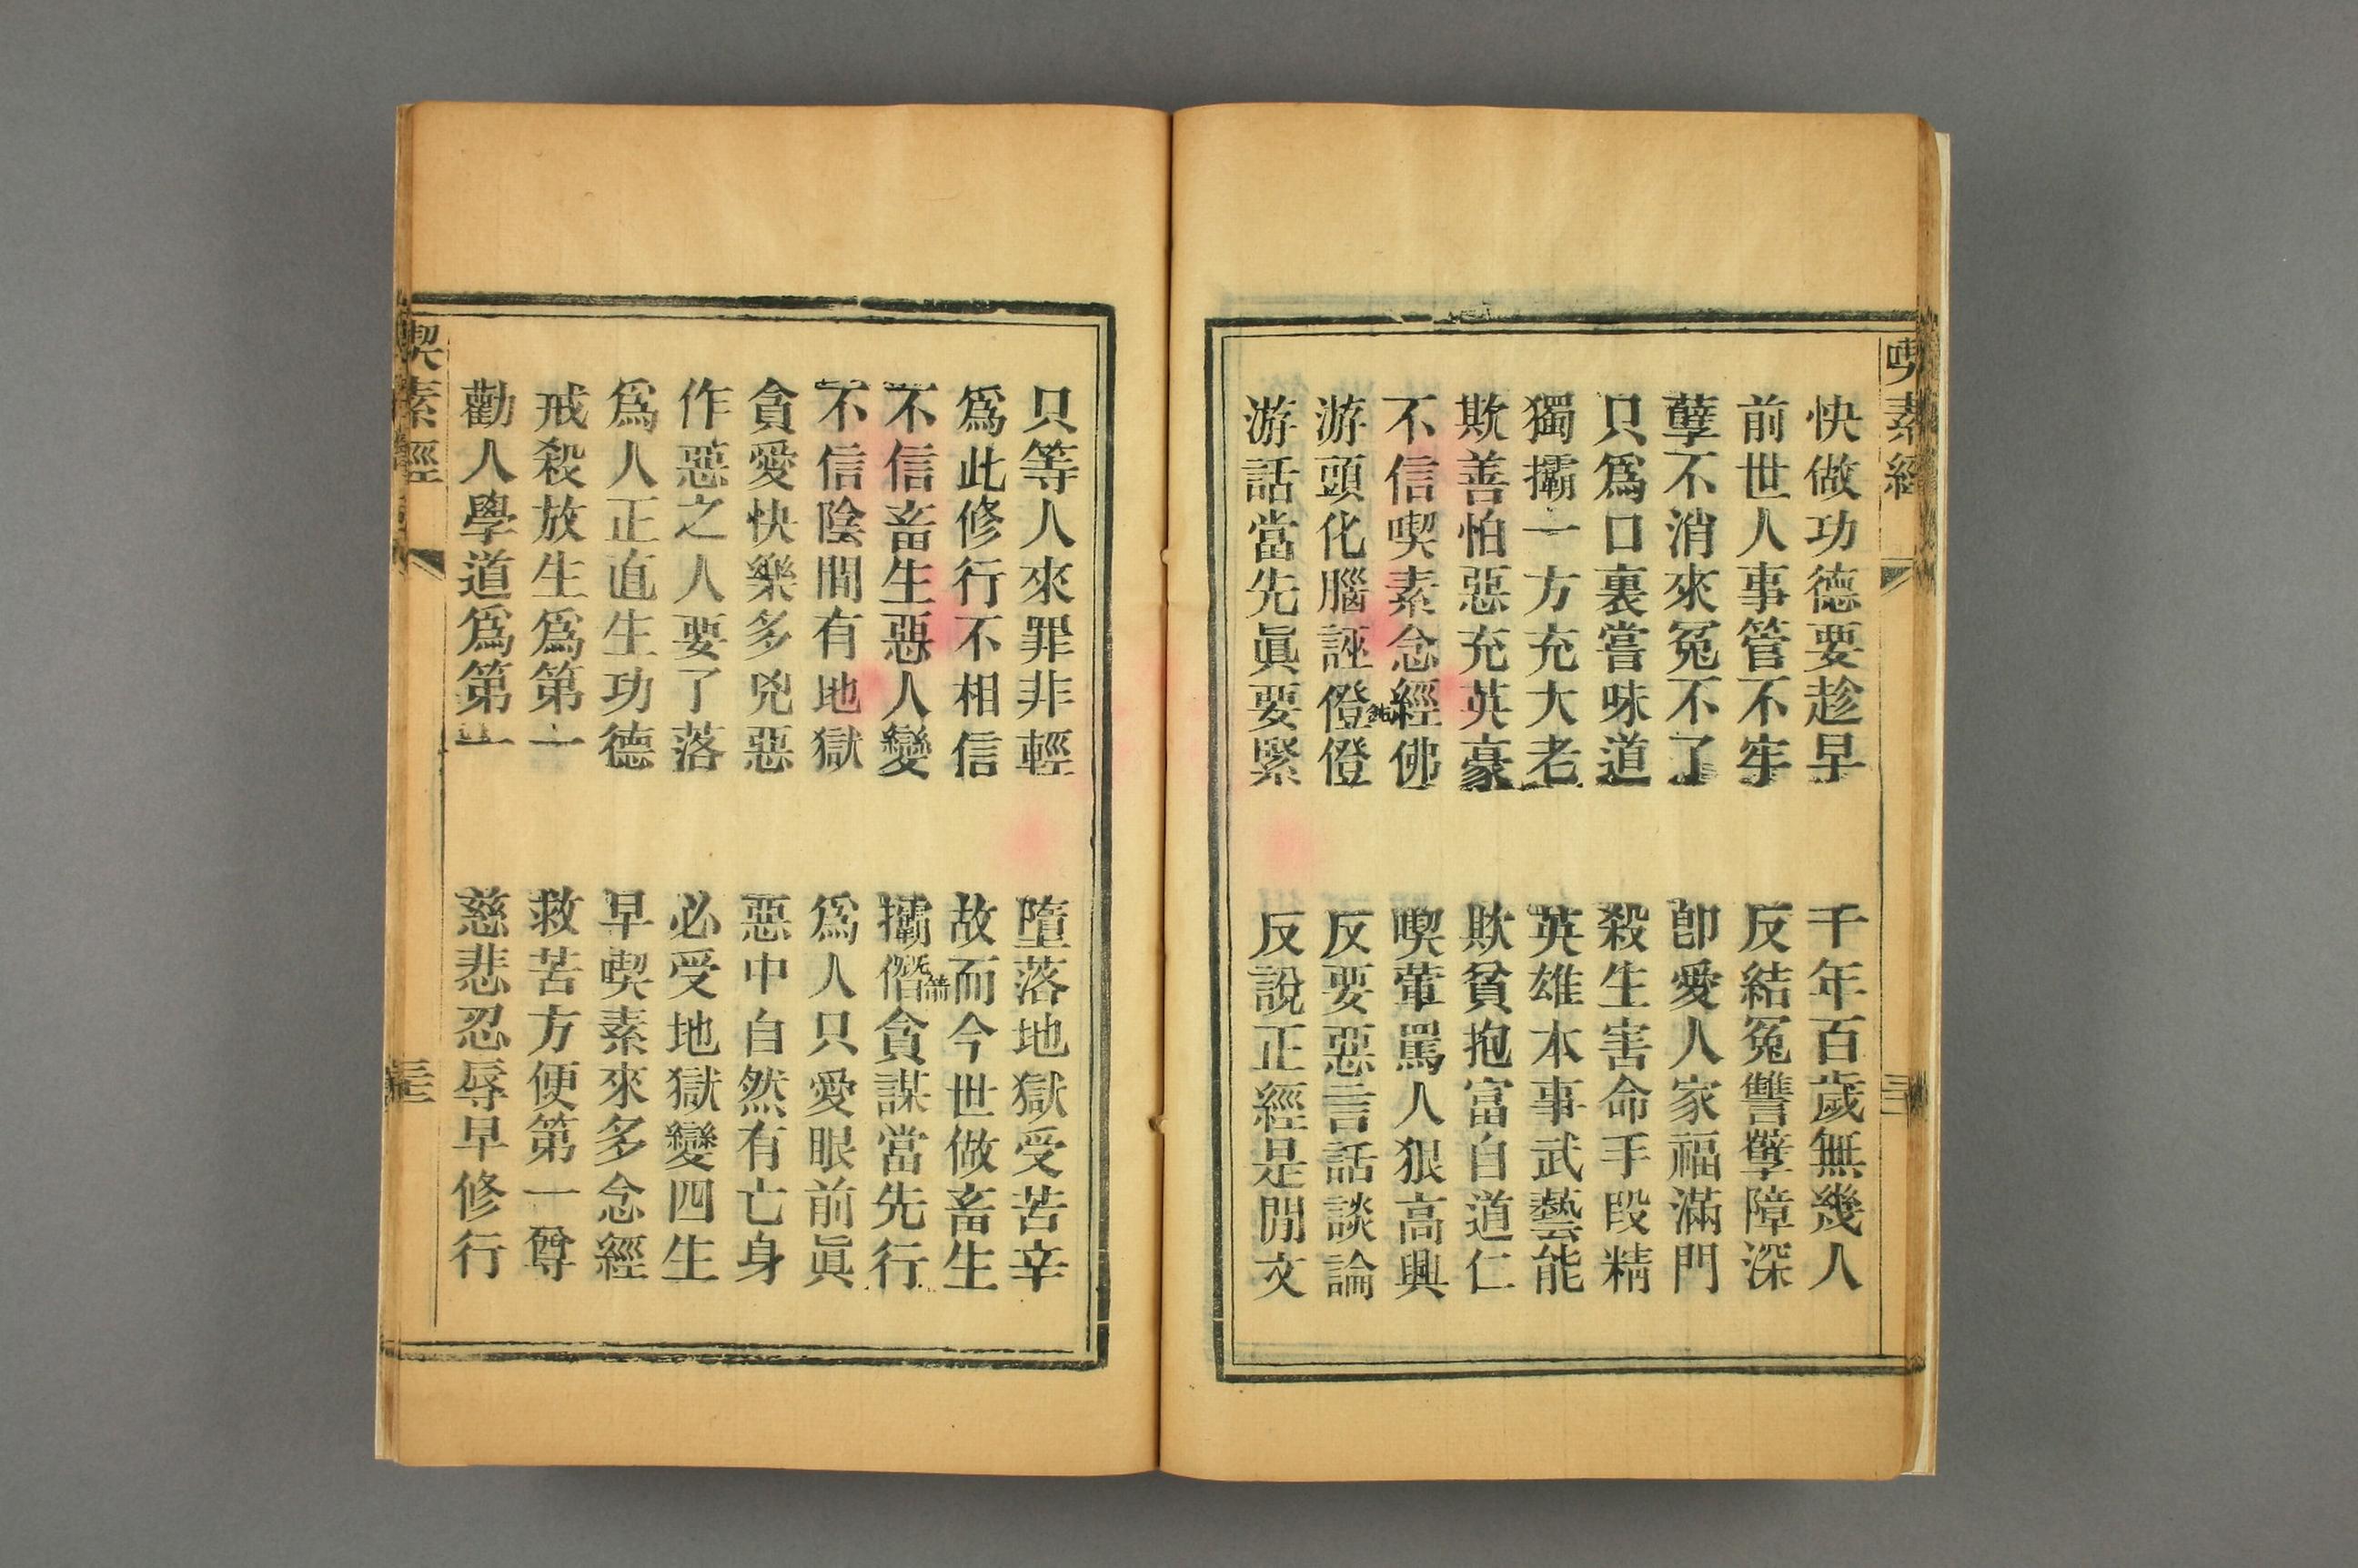 喫素經
快做功德要趁早　千年百歲無幾人
前世人事管不牢　反結冤讐孽障深
孽不消來冤不了　卽愛人家福滿門
只爲口裏嘗味道　殺生害命手段精
獨攂一方充大老　英雄本事武藝能
欺善怕惡充英豪　欺貧抱富自道仁
不信喫素念經佛　喫葷罵人狠高興
游頭化腦誣僜僜　反要惡言話談論
游話當先眞要緊　反說正經是閒文
只等人來罪非輕　墮落地獄受苦辛
爲此修行不相信　故而今世做畜生
不信畜生惡人變　攂僭貪謀當先行
不信陰間有地獄　爲人只愛眼前眞
貪愛快樂多兇惡　惡中自然有亡身
作惡之人要了落　必受地獄變四生
爲人正直生功德　早喫素來多念經
戒殺放生爲第一　救苦方便第一尊
勸人學道爲第一　慈悲忍辱早修行
喫素經